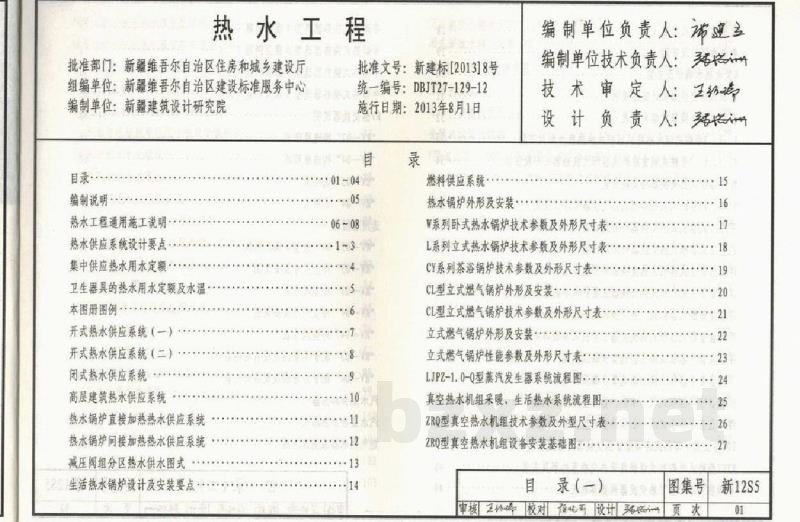 热水工程
批准部门：新疆维吾尔自治区住房和城乡建设厅
组编单位：新疆维吾尔自治区建设标准服务中心
编制单位：新疆建筑设计研究院
批准文号：新建标[2013]8号
统一编号：DBJT27-129-12
施行日期：2013年8月1日
编制单位负责人：
编制单位技术负责人：
技术审定人：
设计负责人：
目录
目录 01-04
编制说明 05
热水工程通用施工说明 06-08
热水供应系统设计要点 1-3
集中供应热水用水定额 4
卫生器具的热水用水定额及水温 5
本图册图例 6
开式热水供应系统（一） 7
开式热水供应系统（二） 8
闭式热水供应系统 9
高层建筑热水供应系统 10
热水锅炉直接加热热水供应系统 11
热水锅炉间接加热热水供应系统 12
减压阀组分区热水供水图式 13
生活热水锅炉设计及安装要点 14
燃料供应系统 15
热水锅炉外形及安装 16
W系列卧式热水锅炉技术参数及外形尺寸表 17
L系列立式热水锅炉技术参数及外形尺寸表 18
CY系列茶浴锅炉技术参数及外形尺寸表 19
CL型立式燃气锅炉外形及安装 20
CL型立式燃气锅炉技术参数及外形尺寸表 21
立式燃气锅炉外形及安装 22
立式燃气锅炉性能参数及外形尺寸表 23
LJPZ-1.0-Q型蒸汽发生器系统流程图 24
真空热水机组采暖、生活热水系统流程图 25
ZRQ型真空热水机组技术参数及外型尺寸表 26
ZRQ型真空热水机组设备安装基础图 27
目录（一） 图集号 新12S5
审核 校对 设计 页次 01